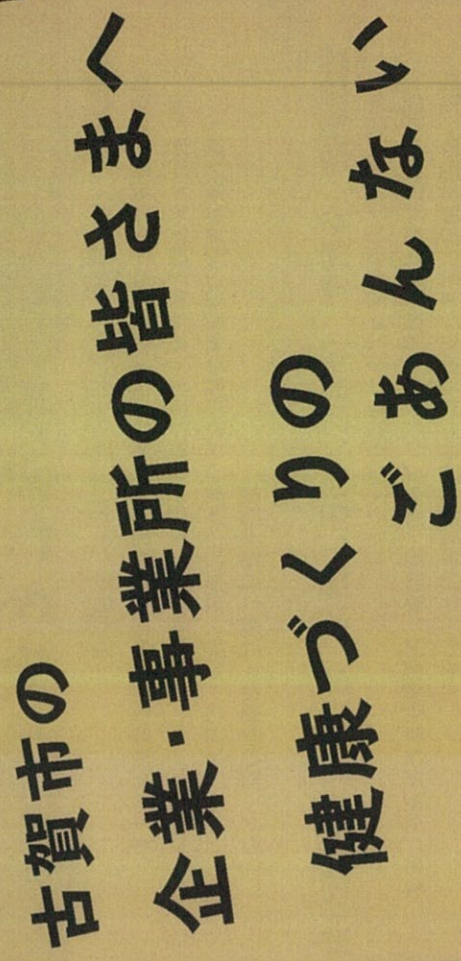 古賀市の
企業・事業所の皆さまへ
健康づくりの
ごあんない